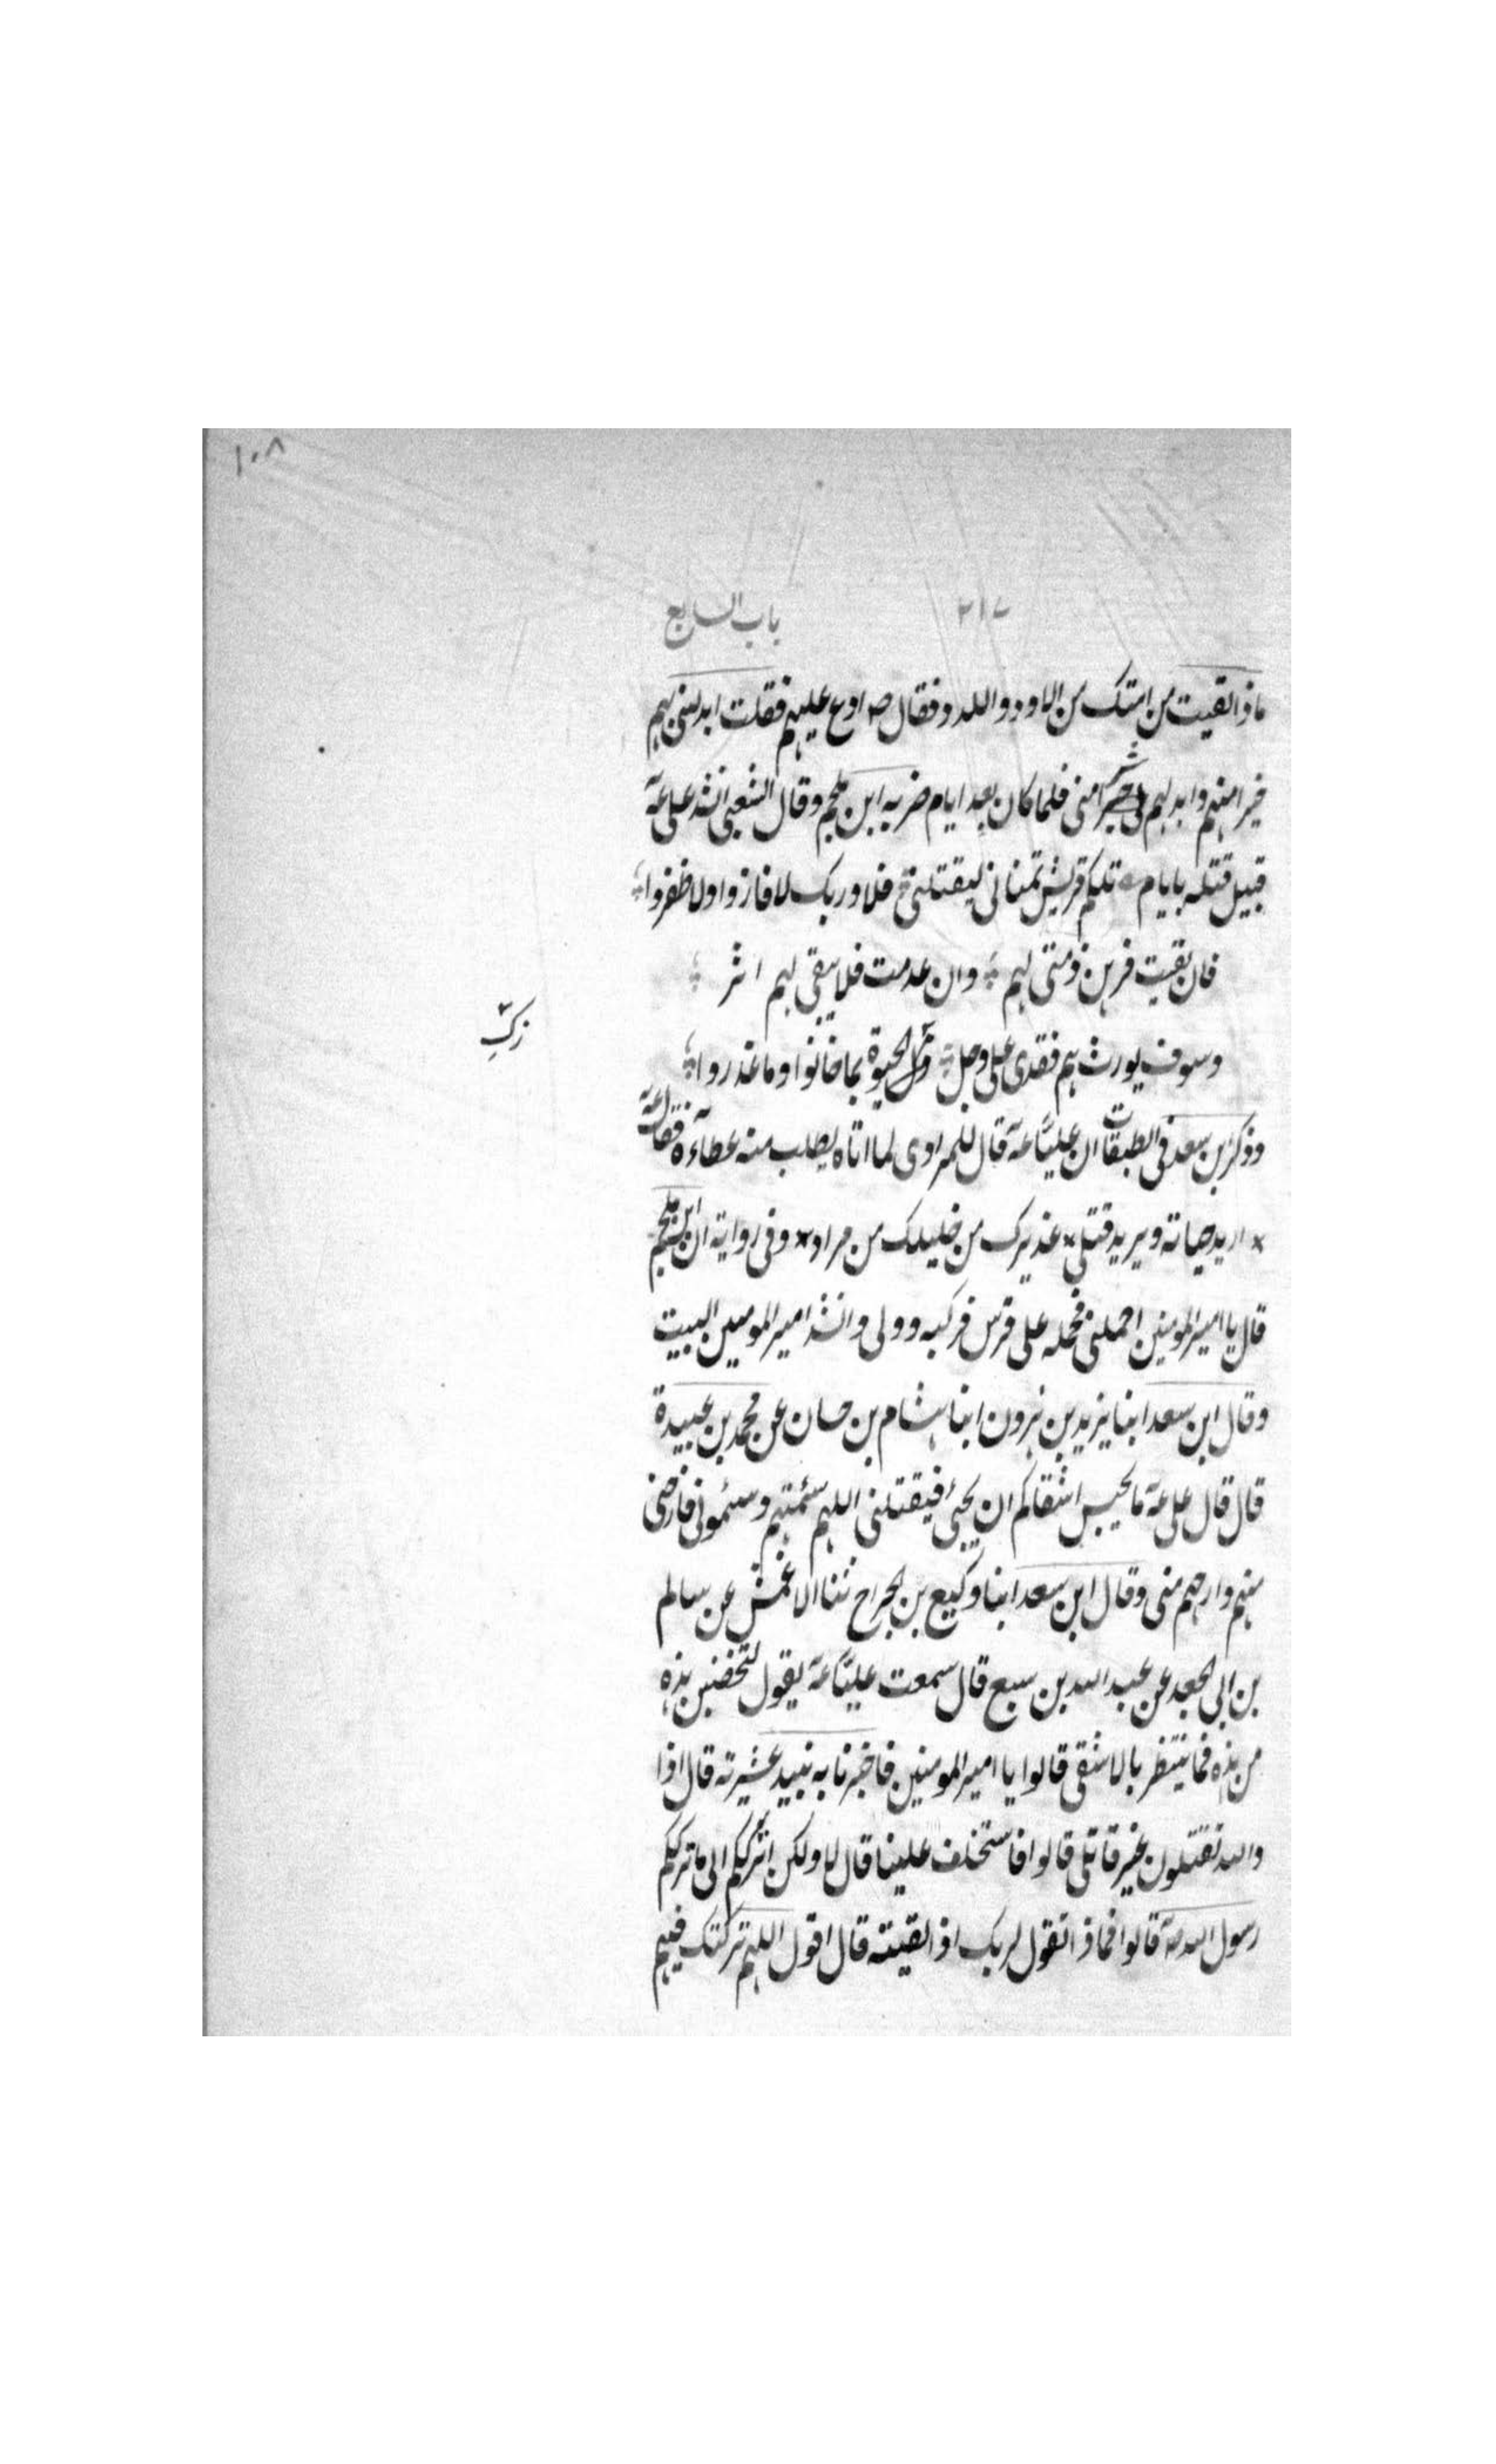 ١٠٨
٢١٧ باب السابع
ماذا لقيت من امتك من الاود واللدد فقال صم ادع عليهم فقلت ابدلنى بهم
خيرا منهم وابدلهم بى شرا منى فلما كان بعد ايام ضربه ابن ملجم وقال الشعبى انشد على عه
قبيل قتله بايام تلكم قريش تمنانى ليقتلنى فلا وربك لا فازوا ولا ظفروا
فان بقيت فرهن ذمتى لهم وان عدمت فلا يبقى لهم اثر
وسوف يورث بهم فقدى على وجل الحيوة بما خانوا وما غدروا
زكى
وذكر بن سعد فى الطبقات ان عليا عه قال للمرادى لما اتاه يطلب منه عطاءه فقال عه
اريد حياته ويريد قتلى عذيرك من خليلك من مراد وفى رواية ان ابن ملجم
قال يا امير المومنين احملنى فحمله على فرس فركبه وولى وانشد امير المومنين البيت
وقال ابن سعد ابنا يزيد بن هرون ابنا هشام بن حسان عن محمد بن عبيدة
قال قال على عه ما يحبس اشقاكم ان يجئ فيقتلنى اللهم سئمتهم وسئمونى فارضى
منهم وارحهم منى وقال ابن سعد ابنا وكيع بن الجراح ثنا الاعمش عن سالم
بن ابى الجعد عن عبد الله بن سبع قال سمعت عليا عه يقول لتخضبن هذه
من هذه فما ينتظر بالاشقى قالوا يا امير المومنين فاخبرنا به نبيد عشيرته قال اذا
والله تقتلون بغير قاتلى قالوا فاستخلف علينا قال لا ولكن اترككم الى ما ترككم
رسول الله صه قالوا فماذا تقول لربك اذا لقيته قال اقول اللهم تركتك فيهم